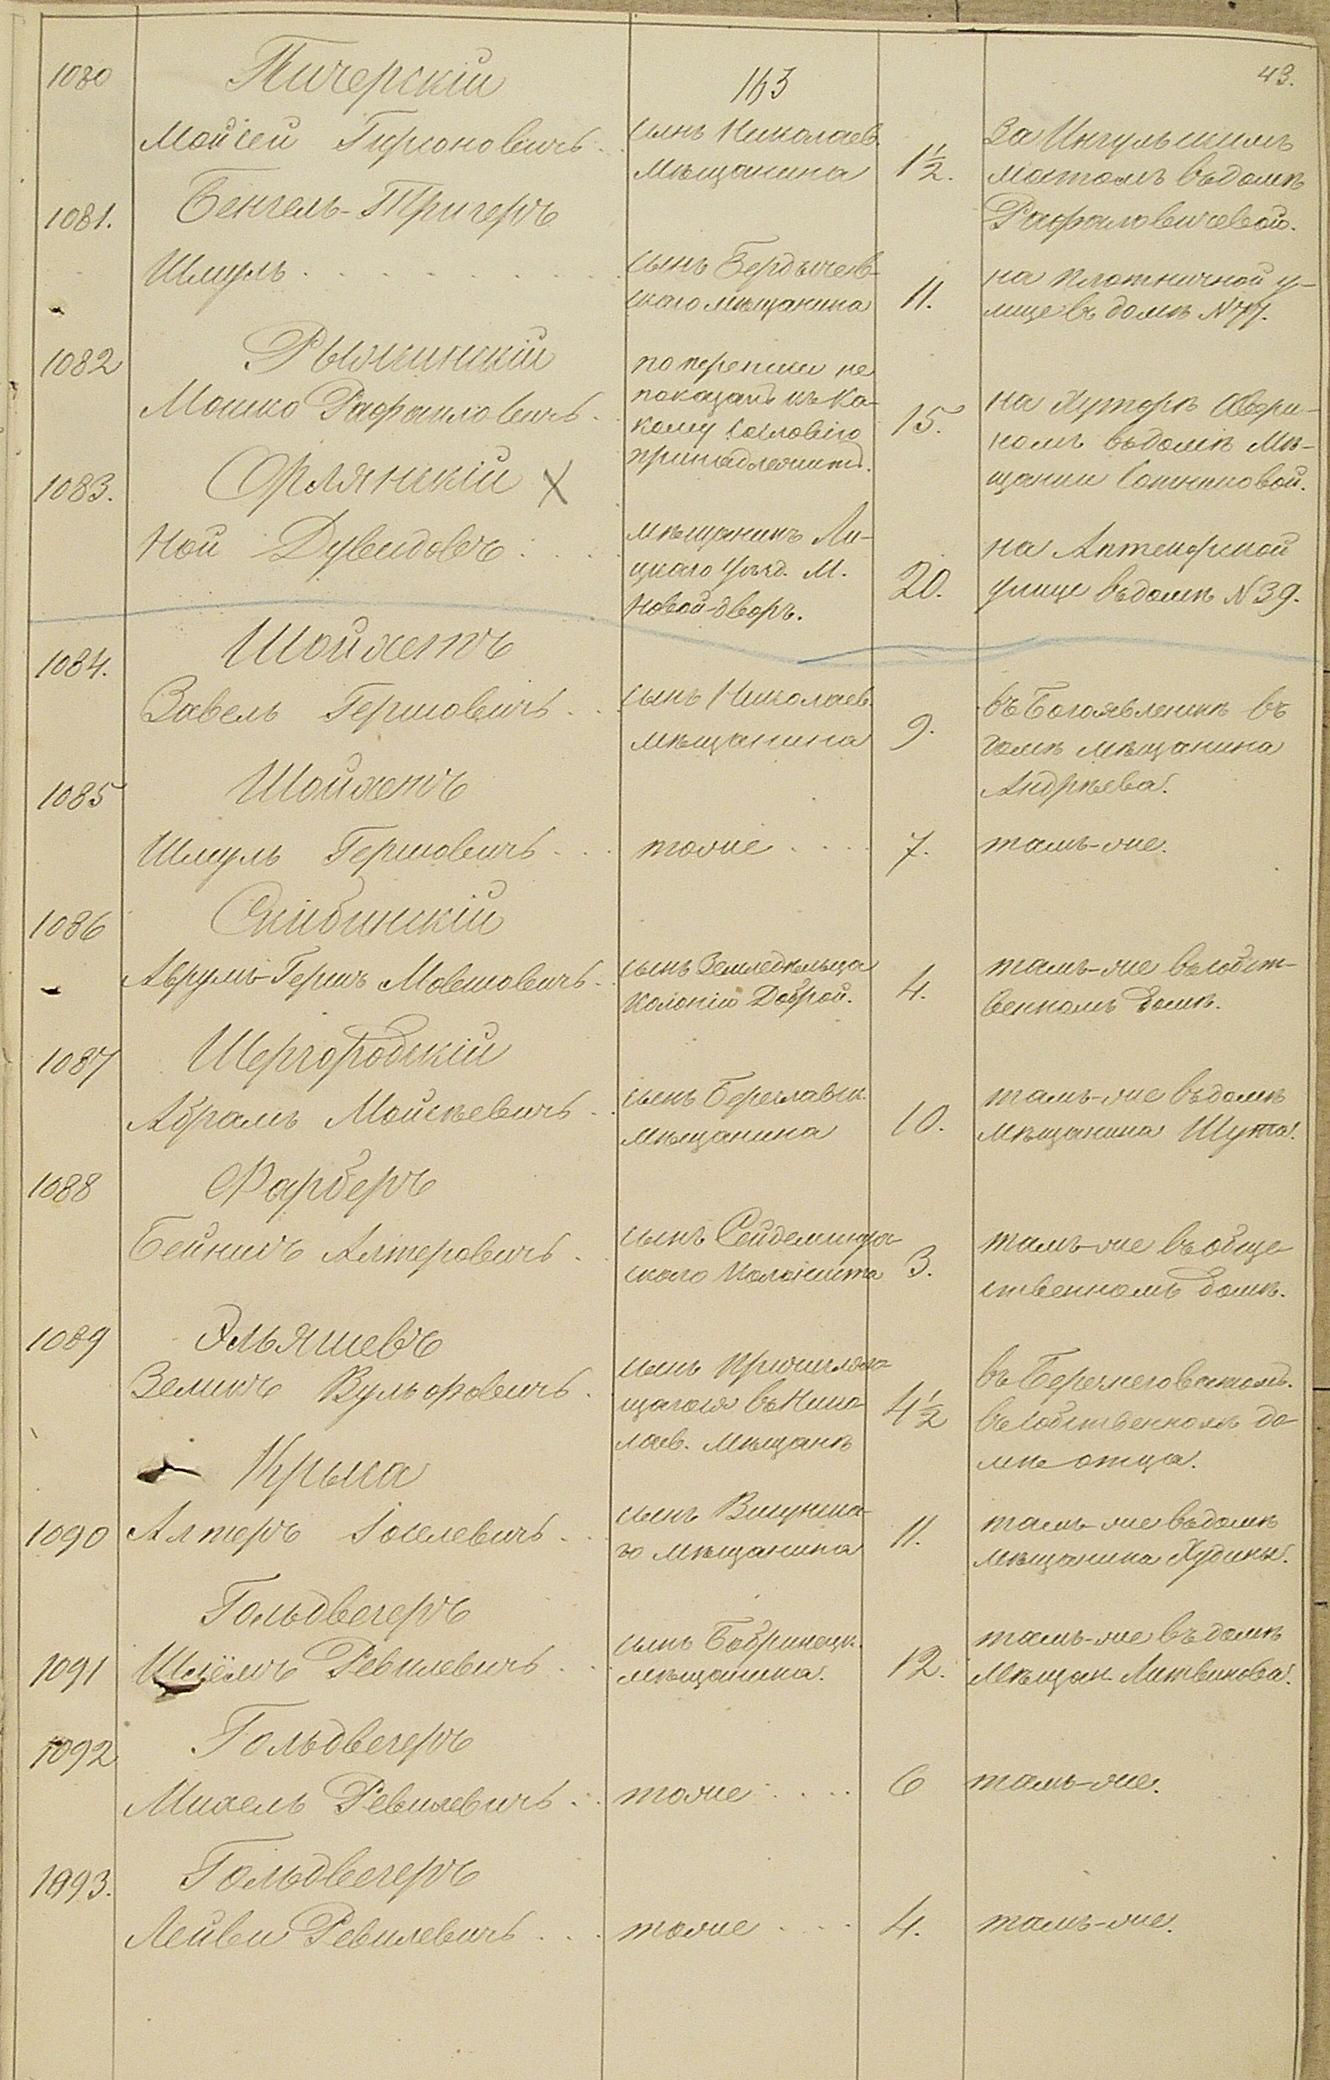 163
43.
1080 Пичерскій
Мойсей Гирсоновичъ. сынъ Николаев. мѣщанина 1½. За Ингульскимъ мостомъ въ домѣ Рафаловичевой.
1081. Бенгель-Тригеръ
Шмуль . . . . . . . сынъ Бердычев-
скаго мѣщанина 11. на Плотничной у-
лице въ домѣ N 77.
1082 Рыжинскій
Мошко Рафаиловичъ. по переписи не
показано къ ка-
кому сословію
принадлежитъ. 15. на Хуторѣ
номъ въ домѣ мѣ-
щанки Сотниковой.
1083. Орлянскій X
Ной Дувидовъ . . . мѣщанинъ Ли-
цкаго Уѣзд. М.
Новой-дворъ. 20. на Аптекарской
улице въ домѣ N 39.
1084. Шойхетъ
Завель Гершовичъ . . сынъ Николаев.
мѣщанина 9. въ Богоявленскѣ въ
домѣ мѣщанина
Андрѣева.
1085 Шойхетъ
Шмуль Гершовичъ . . . тоже . . . . 7. тамъ-же.
1086 Скибинскій
Аврумъ-Гершъ Мовшовичъ . . сынъ Земледѣльца
колоніи Доброй. 4. тамъ-же въ собст-
венномъ домѣ.
1087 Шергородскій
Абрамъ Мойсѣевичъ . . сынъ Береславск.
мѣщанина 10. тамъ-же въ домѣ
мѣщанина Шупта.
1088 Фарберъ
Бейнишъ Алтеровичъ . сынъ Сейдеминух-
скаго колониста 3. тамъ-же въ обще-
ственномъ домѣ.
1089 Эльяшевъ
Зеликъ Вульфовичъ . сынъ причисляю-
щагося въ Нико-
лаев. мѣщанѣ 4½ въ Березнеговатомъ.
въ собственномъ до-
мѣ отца.
Крыса
1090 Алтеръ Іоселевичъ . . сынъ
го мѣщанина 11. тамъ-же въ домѣ
мѣщанина Худины.
Гольдвегеръ
1091 Шлёмъ Ревилевичъ . . сынъ Бобринецк.
мѣщанина. 12. тамъ-же въ домѣ
Мѣщан. Литвинова.
1092 Гольдвегеръ
Михель Ревилевичъ . . тоже . . . . 6 тамъ-же.
1093. Гольдвегеръ
Лейви Ревилевичъ . . . тоже . . . . 4. тамъ-же.